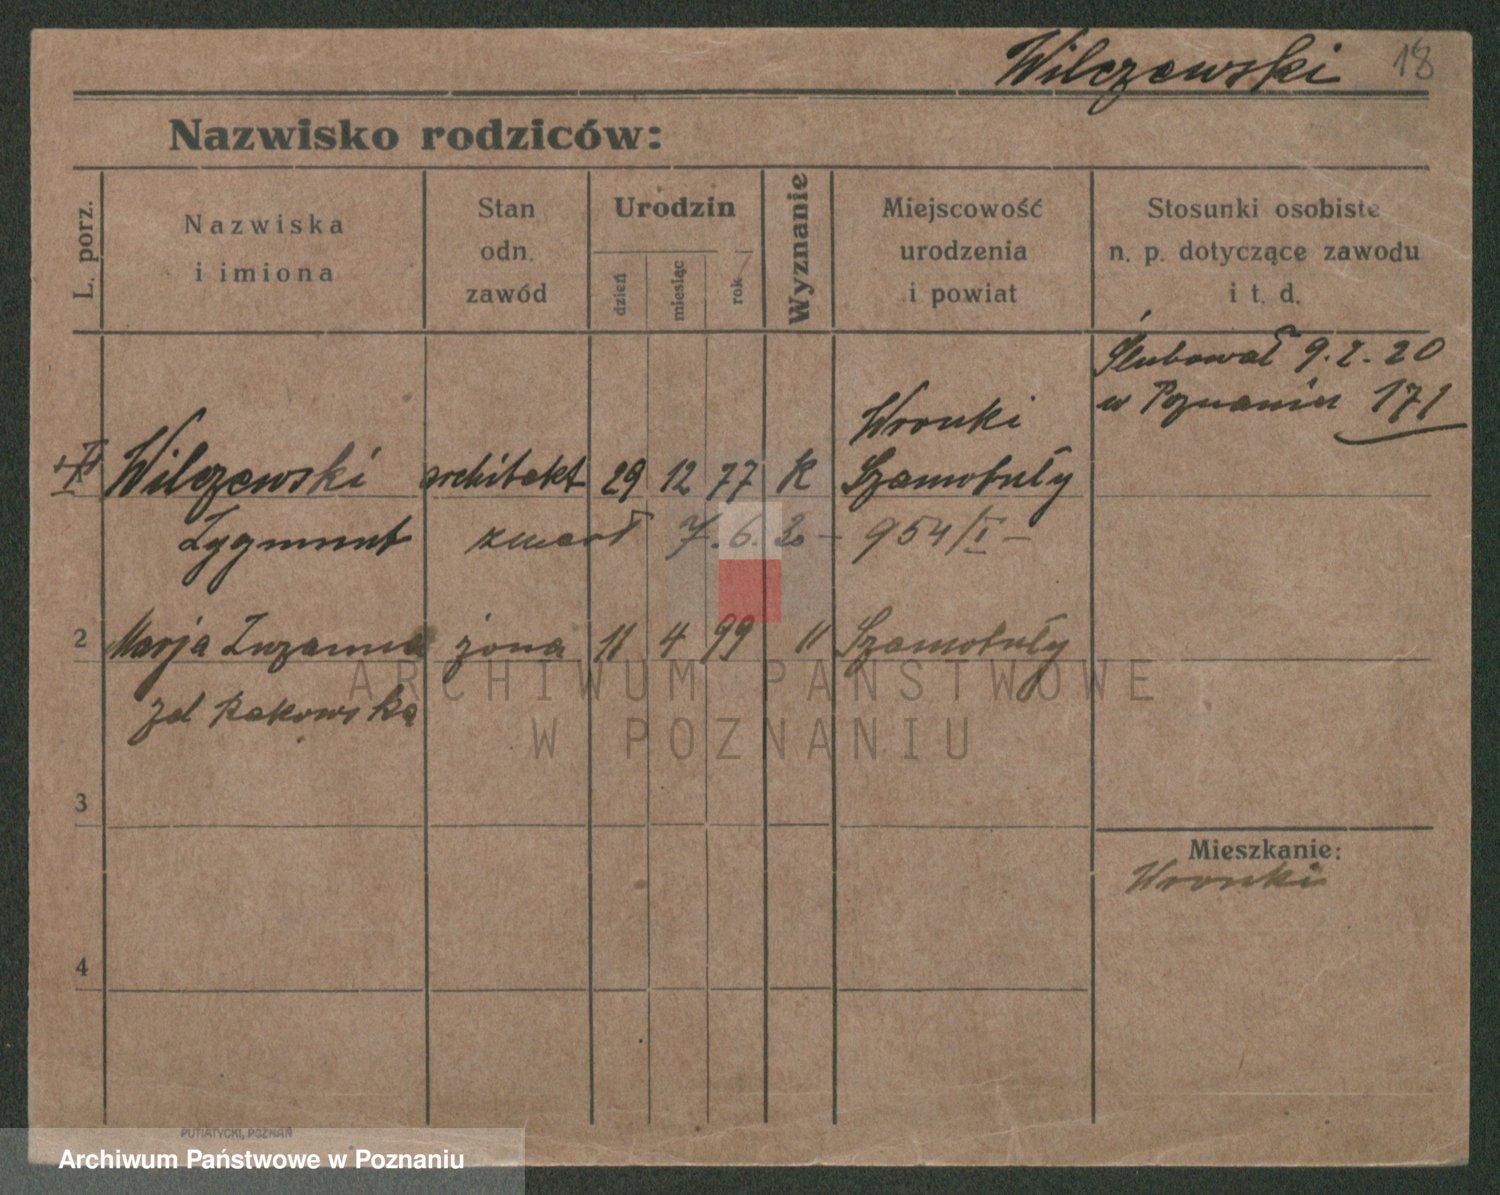 Wilczewski 18
Nazwisko rodziców:
L. porz.
Nazwiska
i imiona
Stan
odn.
zawód
Urodzin
dzień
miesiąc
rok
Wyznanie
Miejscowość
urodzenia
i powiat
Stosunki osobiste
n. p. dotyczące zawodu
i t. d.
Ślubował 9.2.20
w Poznaniu 171
Wronki
Wilczewski architekt 29 12 77 K Szamotuły
Zygmunt zmarł 7.6. 954/I
2 Marja Zuzanna żona 11 4 99 " Szamotuły
Rakowska
ARCHIWUM PAŃSTWOWE
W POZNANIU
3
Mieszkanie:
Wronki
4
PUTIATYCKI, POZNAŃ
Archiwum Państwowe w Poznaniu